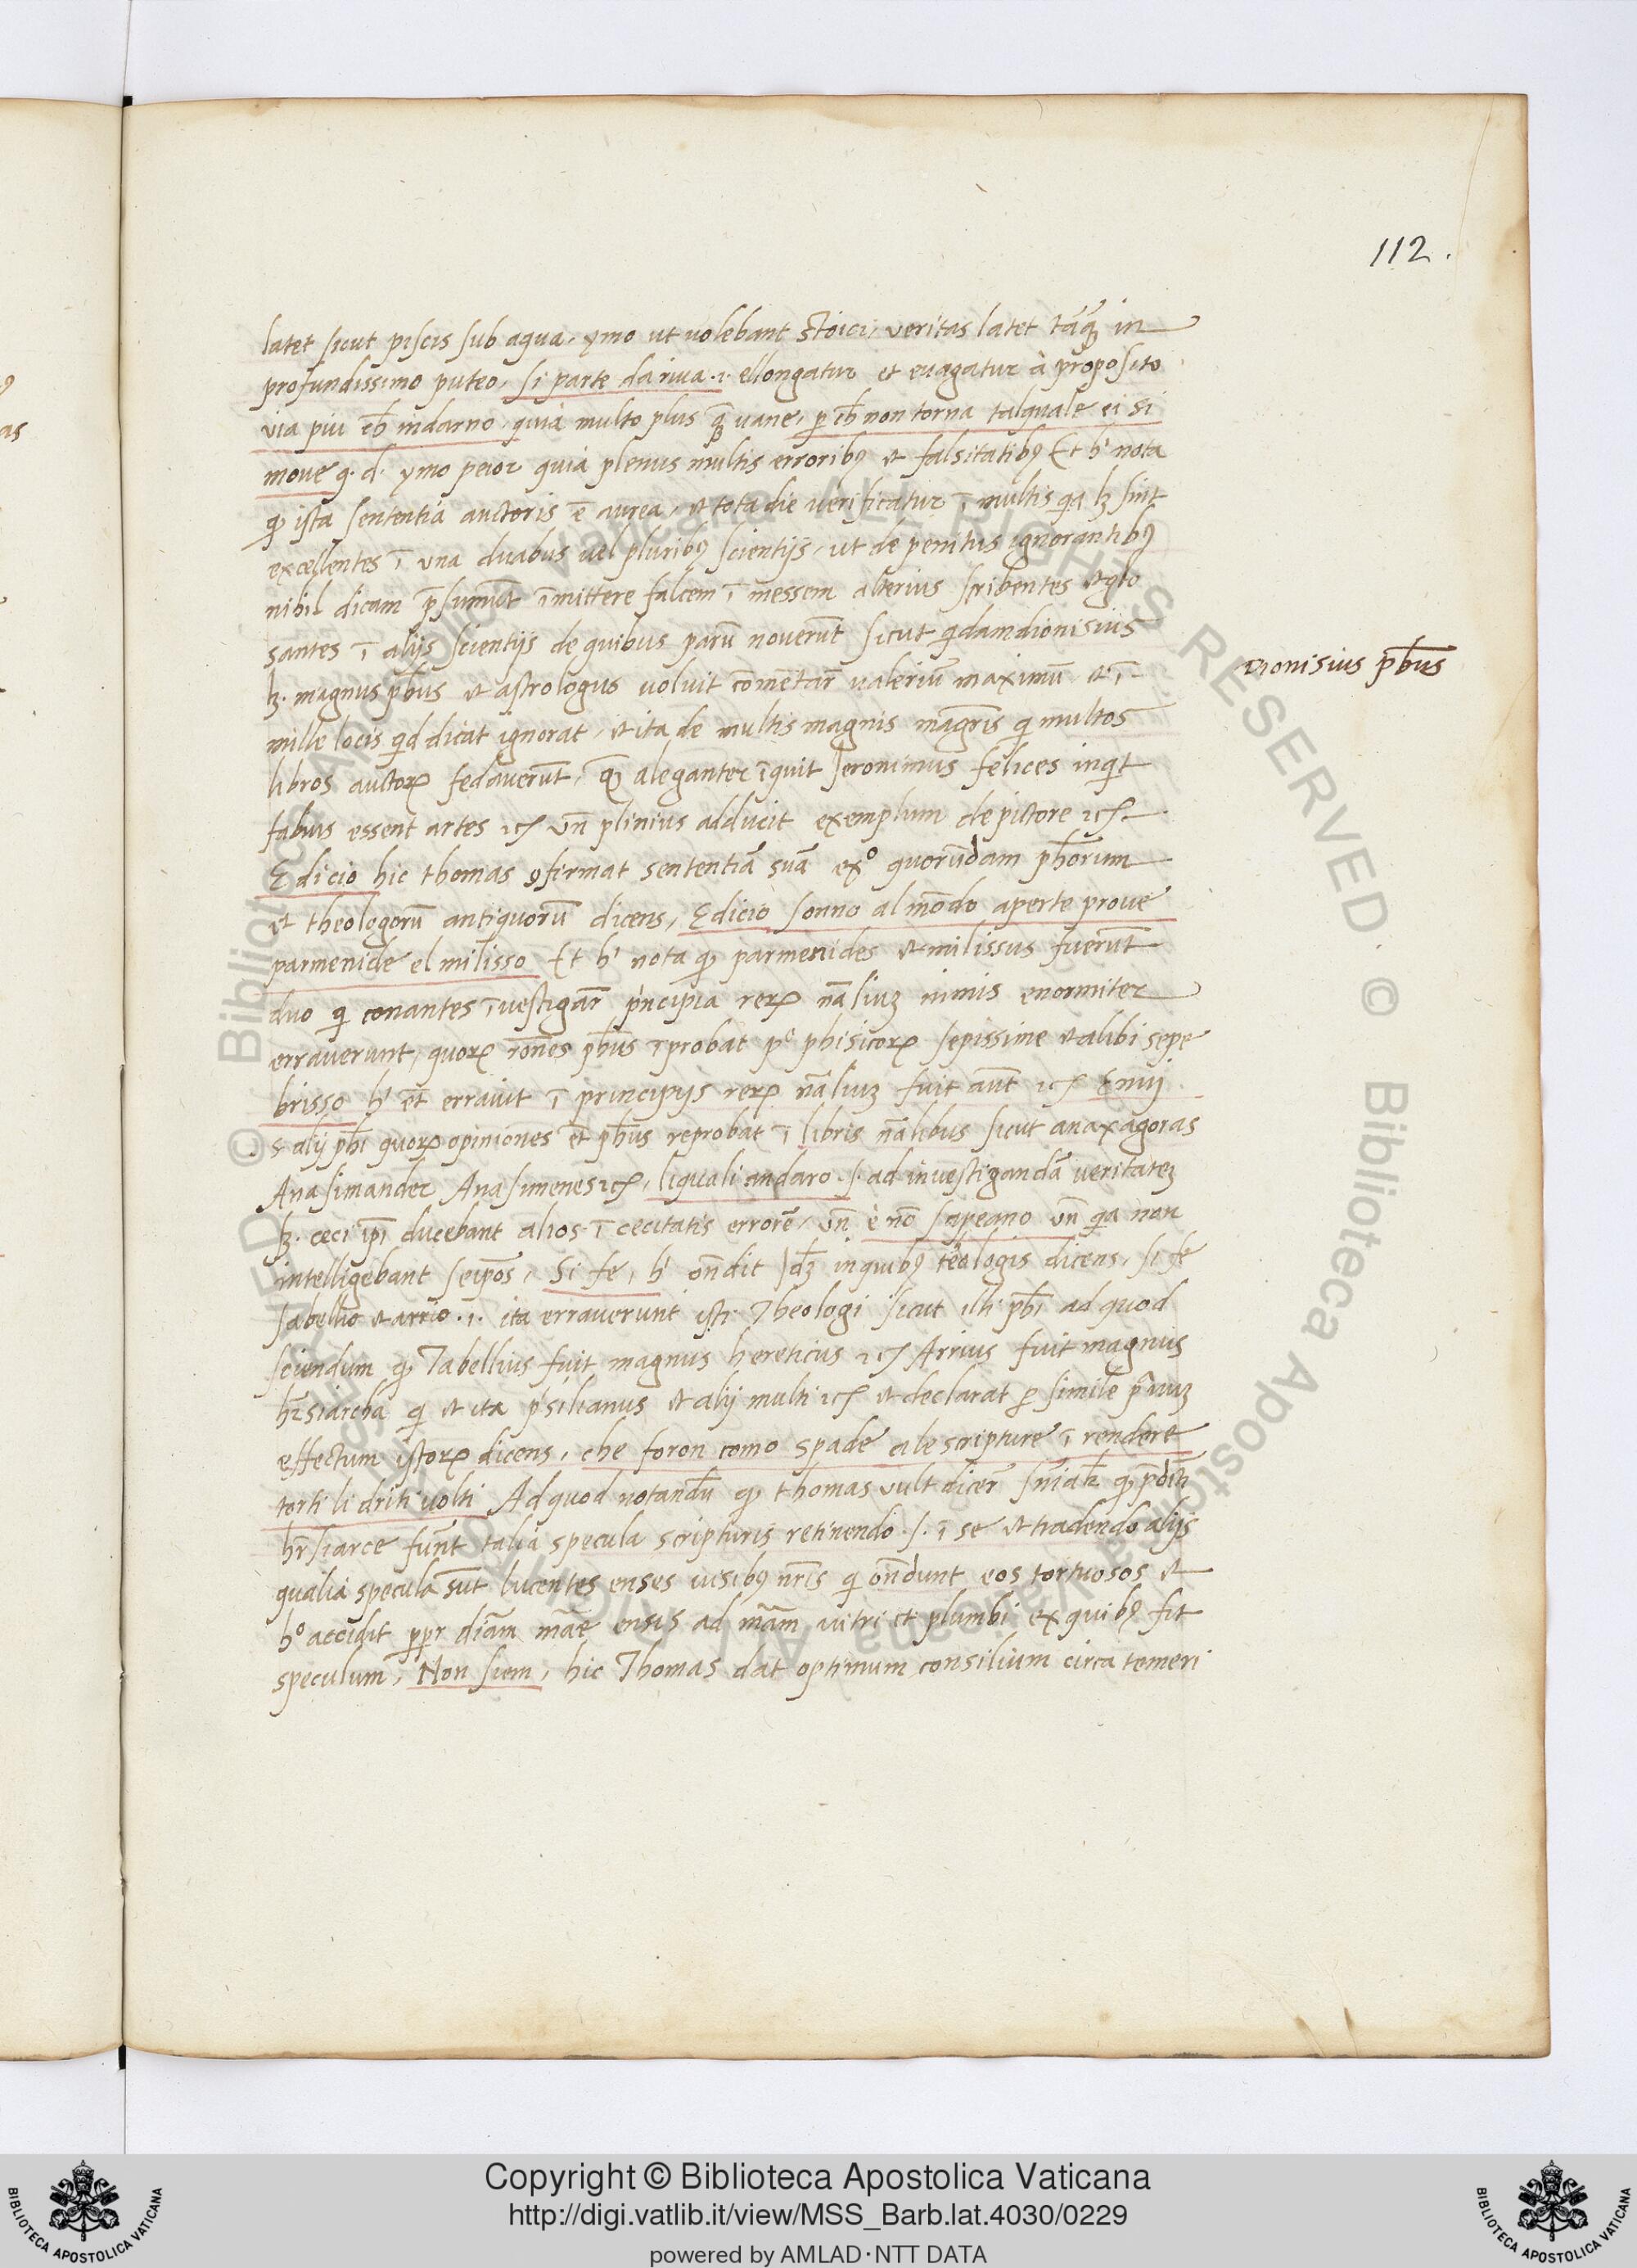 112.
latet sicut piscis sub aqua, ymo ut uolebant stoici, veritas latet tāq̄ȝ in
profundissimo puteo, si parte da riua .i. ellongatur et evagatur à proposito
via piu ch̄ indarno, quia multo plus q̄ȝ uane, p ch̄ non torna talquale ei si
moue q. d. ymo peior quia plenus multis erroribꝫ et falsitatibꝫ Et h' nota
qꝫ ista sententia auctoris ē aurea, et tota die uerificatur ī multis qa lꝫ sint
excellentes ī una duabus uel pluribꝫ scientijs, ut de penitus ignorantibꝫ
nihil dicam p̄sumūt īmittere falcem ī messem alterius scribentes et glo
santes ī alijs scientijs de quibus parū nouerūt sicut qdam dionisius
lꝫ. magnus ph̄us et astrologus uoluit cōmētar̄ ualeriū maximū et ī
mille locis qd dicat ignorat, et ita de multis magnis maḡris qi multos
libros auctoꝝ fedauerūt, qꝫ aleganter īquit Jeronimus felices inqit
fabius essent artes ⁊cꝫ vn̄ plinius adducit exemplum de pictore ⁊cꝫ.
E di cio hic thomas ꝯfirmat sententiā suā exº quorūdam ph̄orum
et theologorū antiquorū dicens, E di ciò sonno al mōdo aperte proue
parmenide el milisso Et h' nota qꝫ parmenides et milissus fuerūt
duo qi conantes īuestigar̄ pⁱncipia rerꝝ nāliuꝫ nimis enormiter
errauerunt, quorꝝ rōnes ph̄us īprobat pº phisicorꝝ sepissime et alibi sepe
brisso h' ēt errauit ī principijs rerꝝ nāliuꝫ fuit aūt ⁊cꝫ E nuij
.s alij ph̄i quorꝝ opiniones ēt ph̄us reprobat ī libris nālibus sicut anaxagoras
Anasimander Anasimenes ⁊cꝫ, liquali andaro .s. ad inuestigandā ueritateꝫ
lꝫ. ceci ip̄i ducebant alios ī cecitatis errorē, vn̄ è nō sapeano vn̄ qa non
intelligebant seip̄os, Si fe, h' on̄dit Jdꝫ in quibꝫ teologis dicens, si fe
sabellio et arrio .i. ita errauerunt isti Theologi sicut illi ph̄i ad quod
sciendum qꝫ Sabellius fuit magnus hereticus ⁊cꝫ Arrius fuit magnus
h̄rsiarcha qi et ita pⁱsilianus et alij multi ⁊cꝫ et declarat ꝑ simile pⁱuuꝫ
effectum istorꝝ dicens, che foron como spade ale scripture ī rendere
torti li driti uolti Ad quod notandū qꝫ thomas vult dicer̄ sn̄ialr̄ qꝫ p̄dicti
h̄rsiarce fuūt talia specula scripturis retinendo .s. ī se et tradendo alijs
qualia specula sūt lucentes enses uisibꝫ nr̄is qi on̄dunt eos tortuosos et
hº accidit ppr diām māe ensis ad mām uitri et plumbi ex quibꝫ fit
speculum, Non siem, hic Thomas dat optimum consilium circa temeri
Dionisius ph̄us
Copyright © Biblioteca Apostolica Vaticana
http://digi.vatlib.it/view/MSS_Barb.lat.4030/0229
powered by AMLAD·NTT DATA
BIBLIOTECA APOSTOLICA VATICANA
BIBLIOTECA APOSTOLICA VATICANA